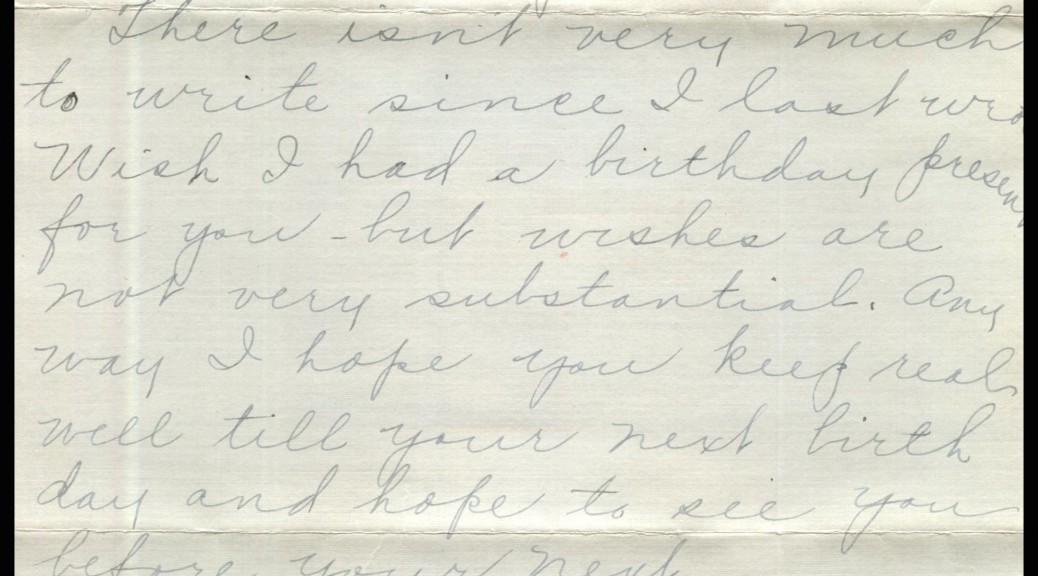 There isn't very much
to write since I last wro
Wish I had a birthday present
for you - but wishes are
not very substantial. Any
way I hope you keep real
well till your next birth
day and hope to see you
before your next